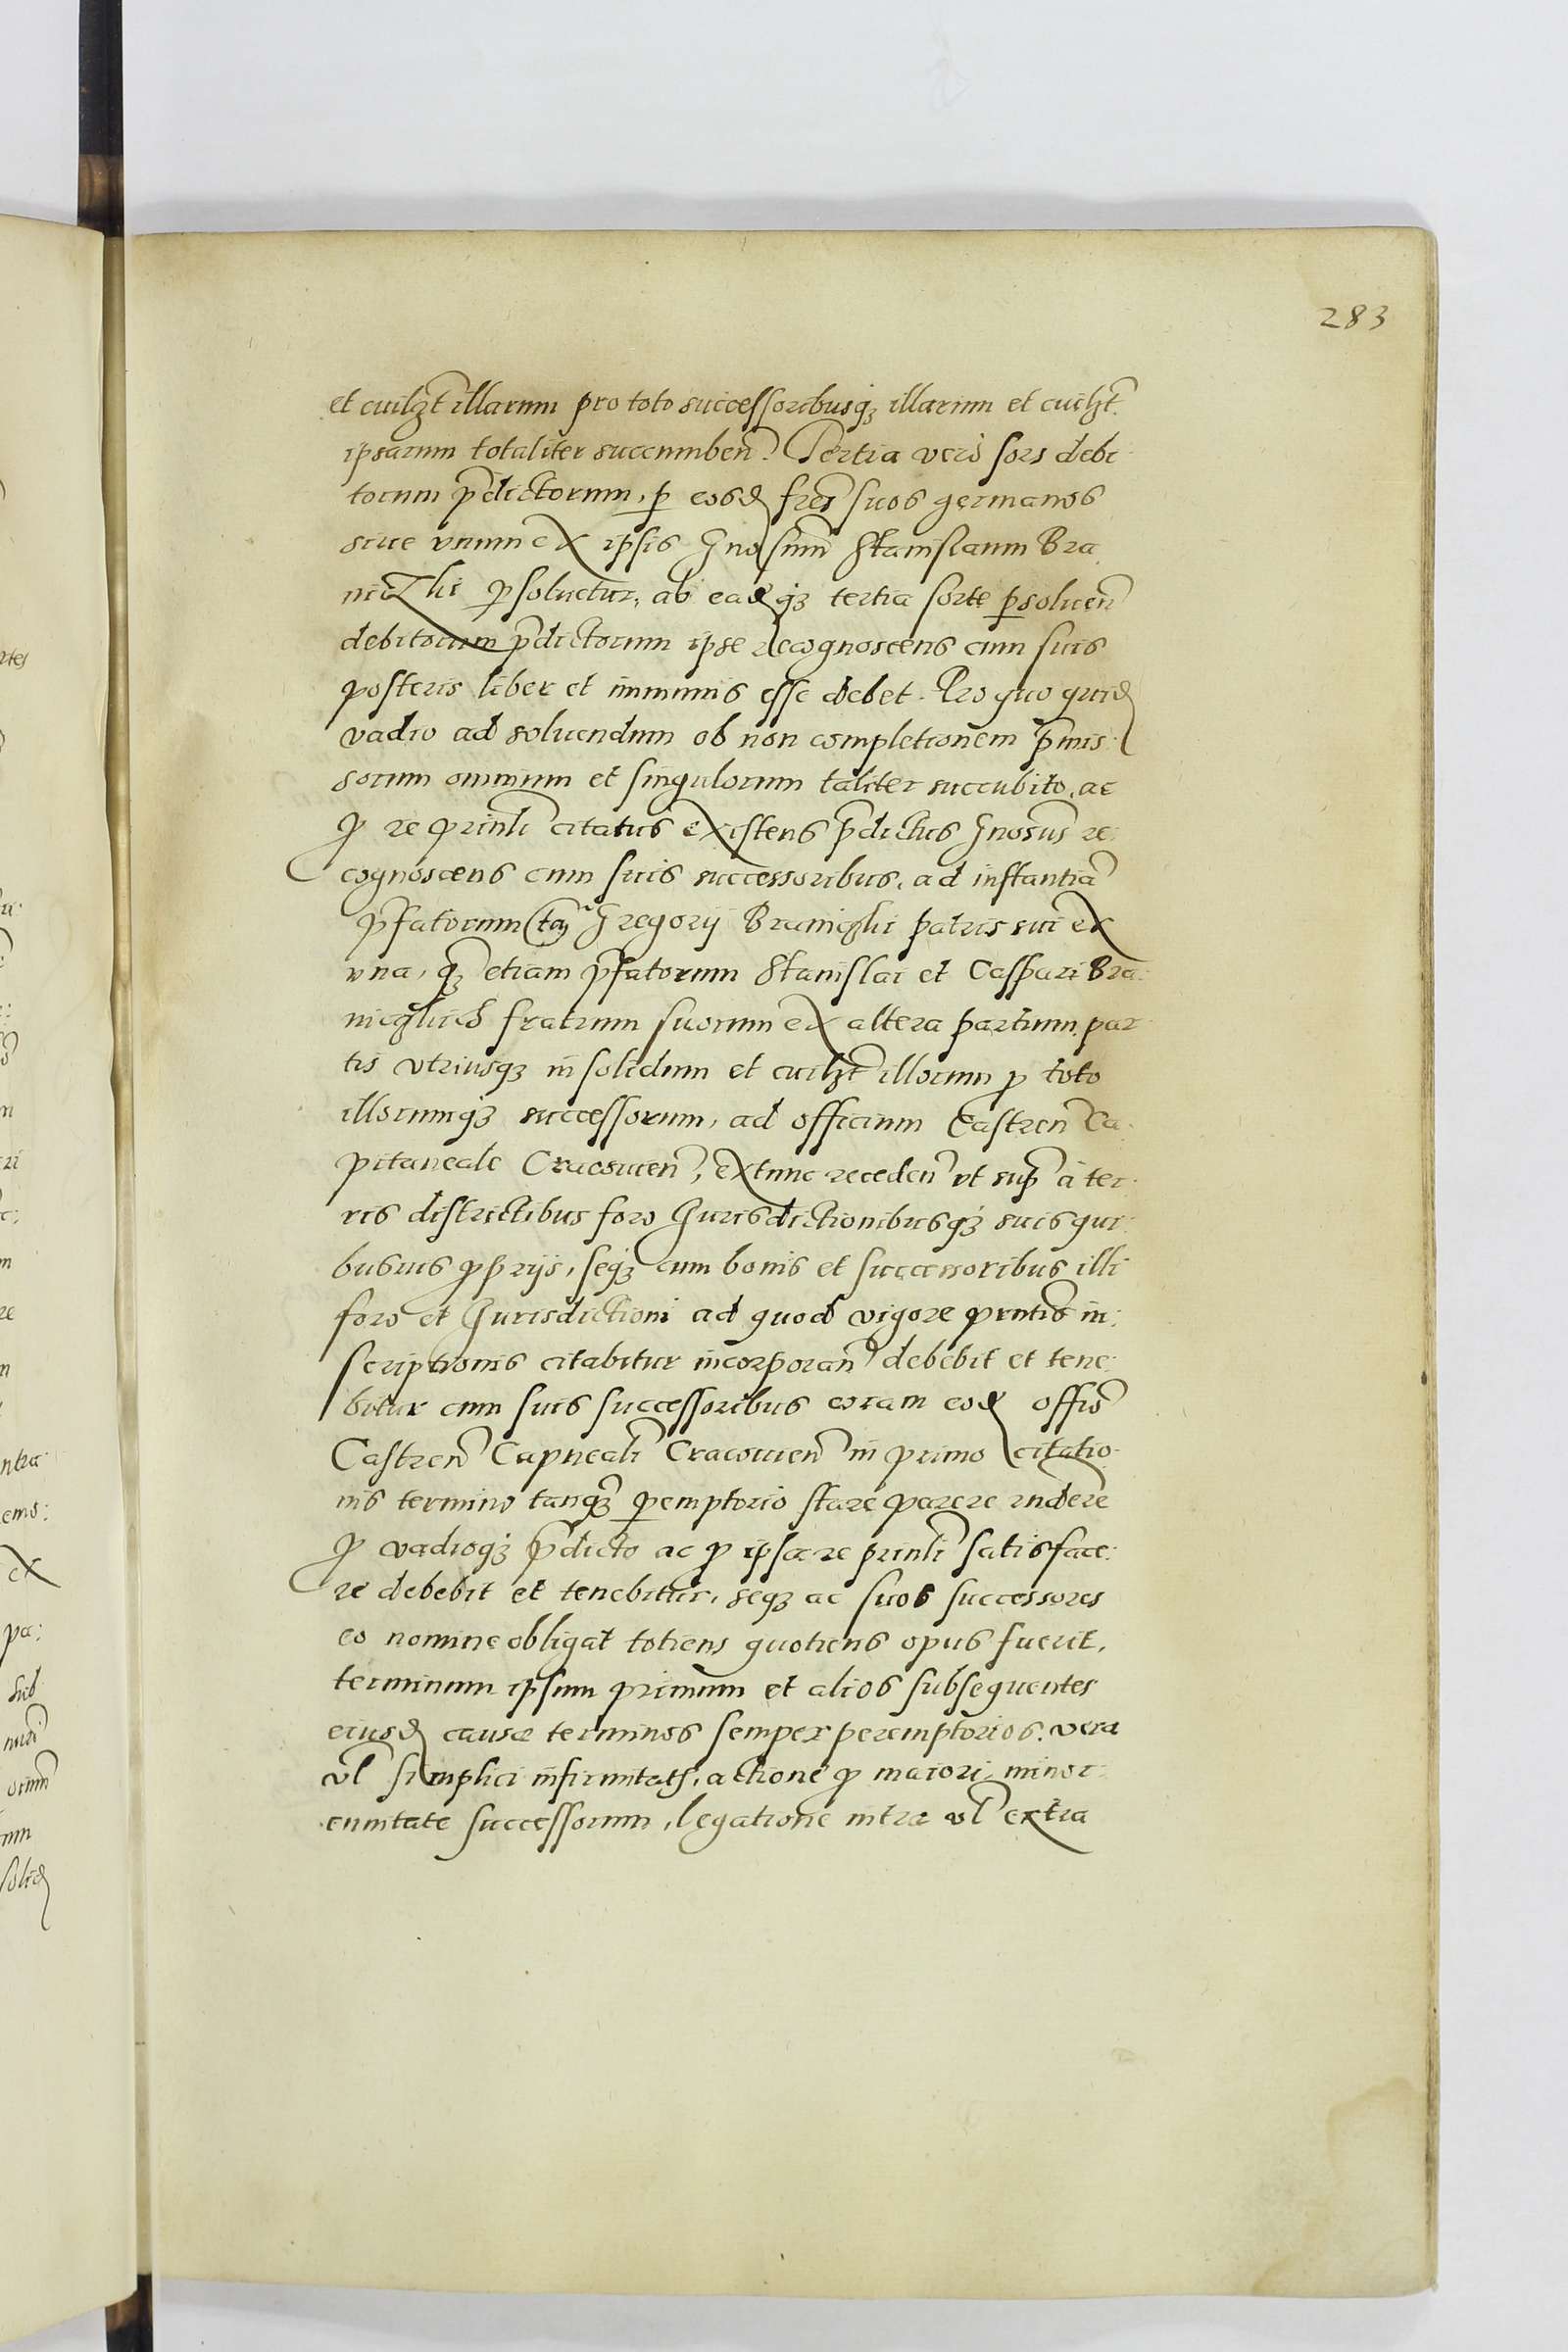 283
et cuilꝫt illarum pro toto successoribusqꝫ illarum et cuilꝫt
ipsarum totaliter succumben̄. Tertia vero sors debi
torum p̄dictorum, ꝑ eosd fr̄es suos germanos
siue vnum ex ipsis Gn̄osum Stanislaum Bra
niczki ꝑsoluetur, ab eadqꝫ tertia sorte ꝑsoluen̄
debitorum p̄dictorum ipse recognoscens cum suis
posteris liber et immunis esse debet. Pro quo quid
vadio ad soluendum ob non completionem p̄mis
sorum omnium et singulorum taliter succubito, ac
ꝓ re prin̄li citatus existens p̄dictus Gn̄osus re:
cognoscens cum suis successoribus, ad instantiā
p̄fatorum Gregorij Braniczki patris sui ex
vna, qꝫ etiam p̄fatorum Stanislai et Caspari Bra:
niczkich fratrum suorum ex altera partium, par
tis vtriusqꝫ in solidum et cuilꝫt illorum ꝓ toto
illorumqꝫ successorum, ad officium Castren̄ Ca:
pitaneale Cracouien̄, extunc receden̄ vt sup̄ à ter
ris districtibus foro Iurisdictionibusqꝫ suis qui:
busuis ꝓprijs, seqꝫ cum bonis et successoribus illi
foro et Iurisdictioni ad quod vigore pn̄tis in:
scriptionis citabitur incorporan̄ debebit et tene
bitur cum suis successoribus coram eod off̄io
Castren̄ Capn̄eali Cracouien̄ in primo citatio
nis termino tanqꝫ ꝑemptorio stare parere rn̄dere
ꝓ vadioqꝫ p̄dicto ac ꝓ ipsa re prin̄li satisface:
re debebit et tenebitur, seqꝫ ac suos successores
eo nomine obligat totiens quotiens opus fuerit,
terminum ipsum primum et alios subsequentes
eiusd causæ terminos semper peremptorios. vera
vl̄ simplici infirmitate, actione ꝓ maiori, minor
ennitate successorum, legatione intra vl̄ extra